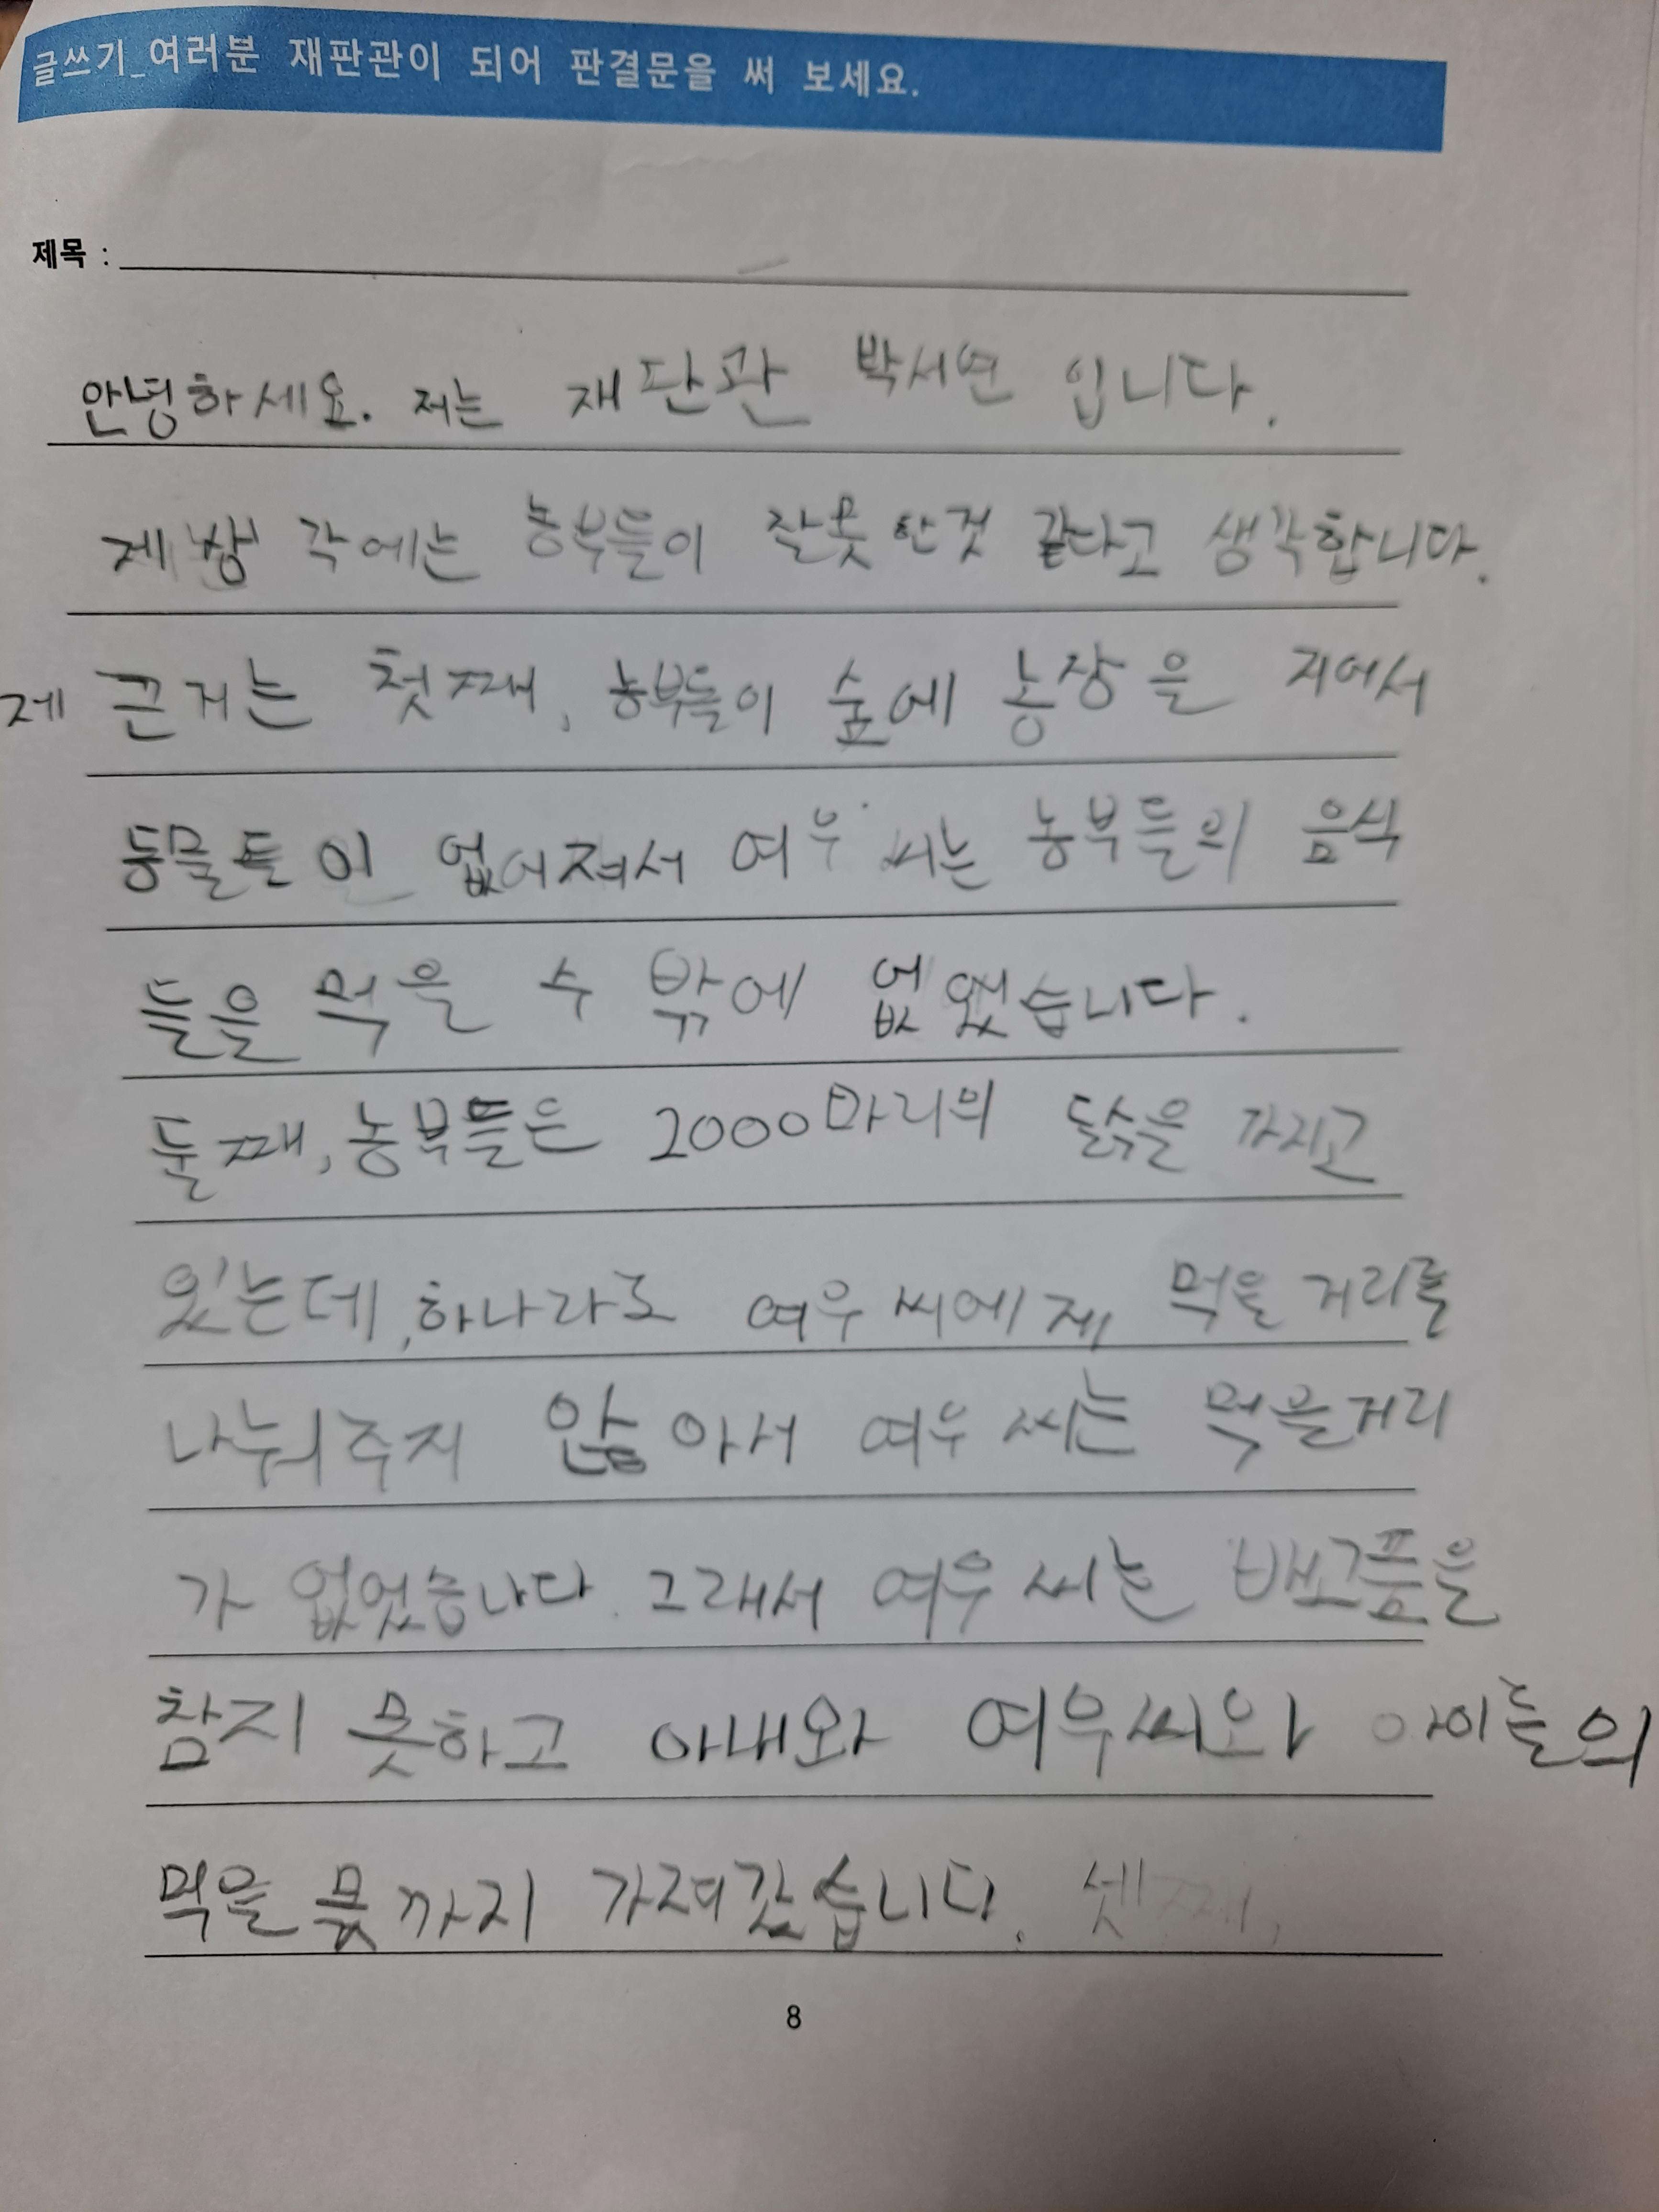 글쓰기_여러분 재판관이 되어 판결문을 써 보세요.
제목 :
안녕하세요. 저는 재판관 박서연 입니다.
제 생각에는 농부들이 잘못한것 같다고 생각합니다.
제 근거는 첫째, 농부들이 숲에 농장을 지어서
동물들이 없어져서 여우 씨는 농부들의 음식
들을 먹을 수 밖에 없었습니다.
둘째, 농부들은 2000마리의 닭을 가지고
있는데, 하나라도 여우 씨에게 먹을거리를
나눠주지 않아서 여우 씨는 먹을거리
가 없었습니다. 그래서 여우 씨는 배고픔을
참지 못하고 아내와 여우씨와 아이들의
먹을 몫까지 가져갔습니다. 셋째,
8